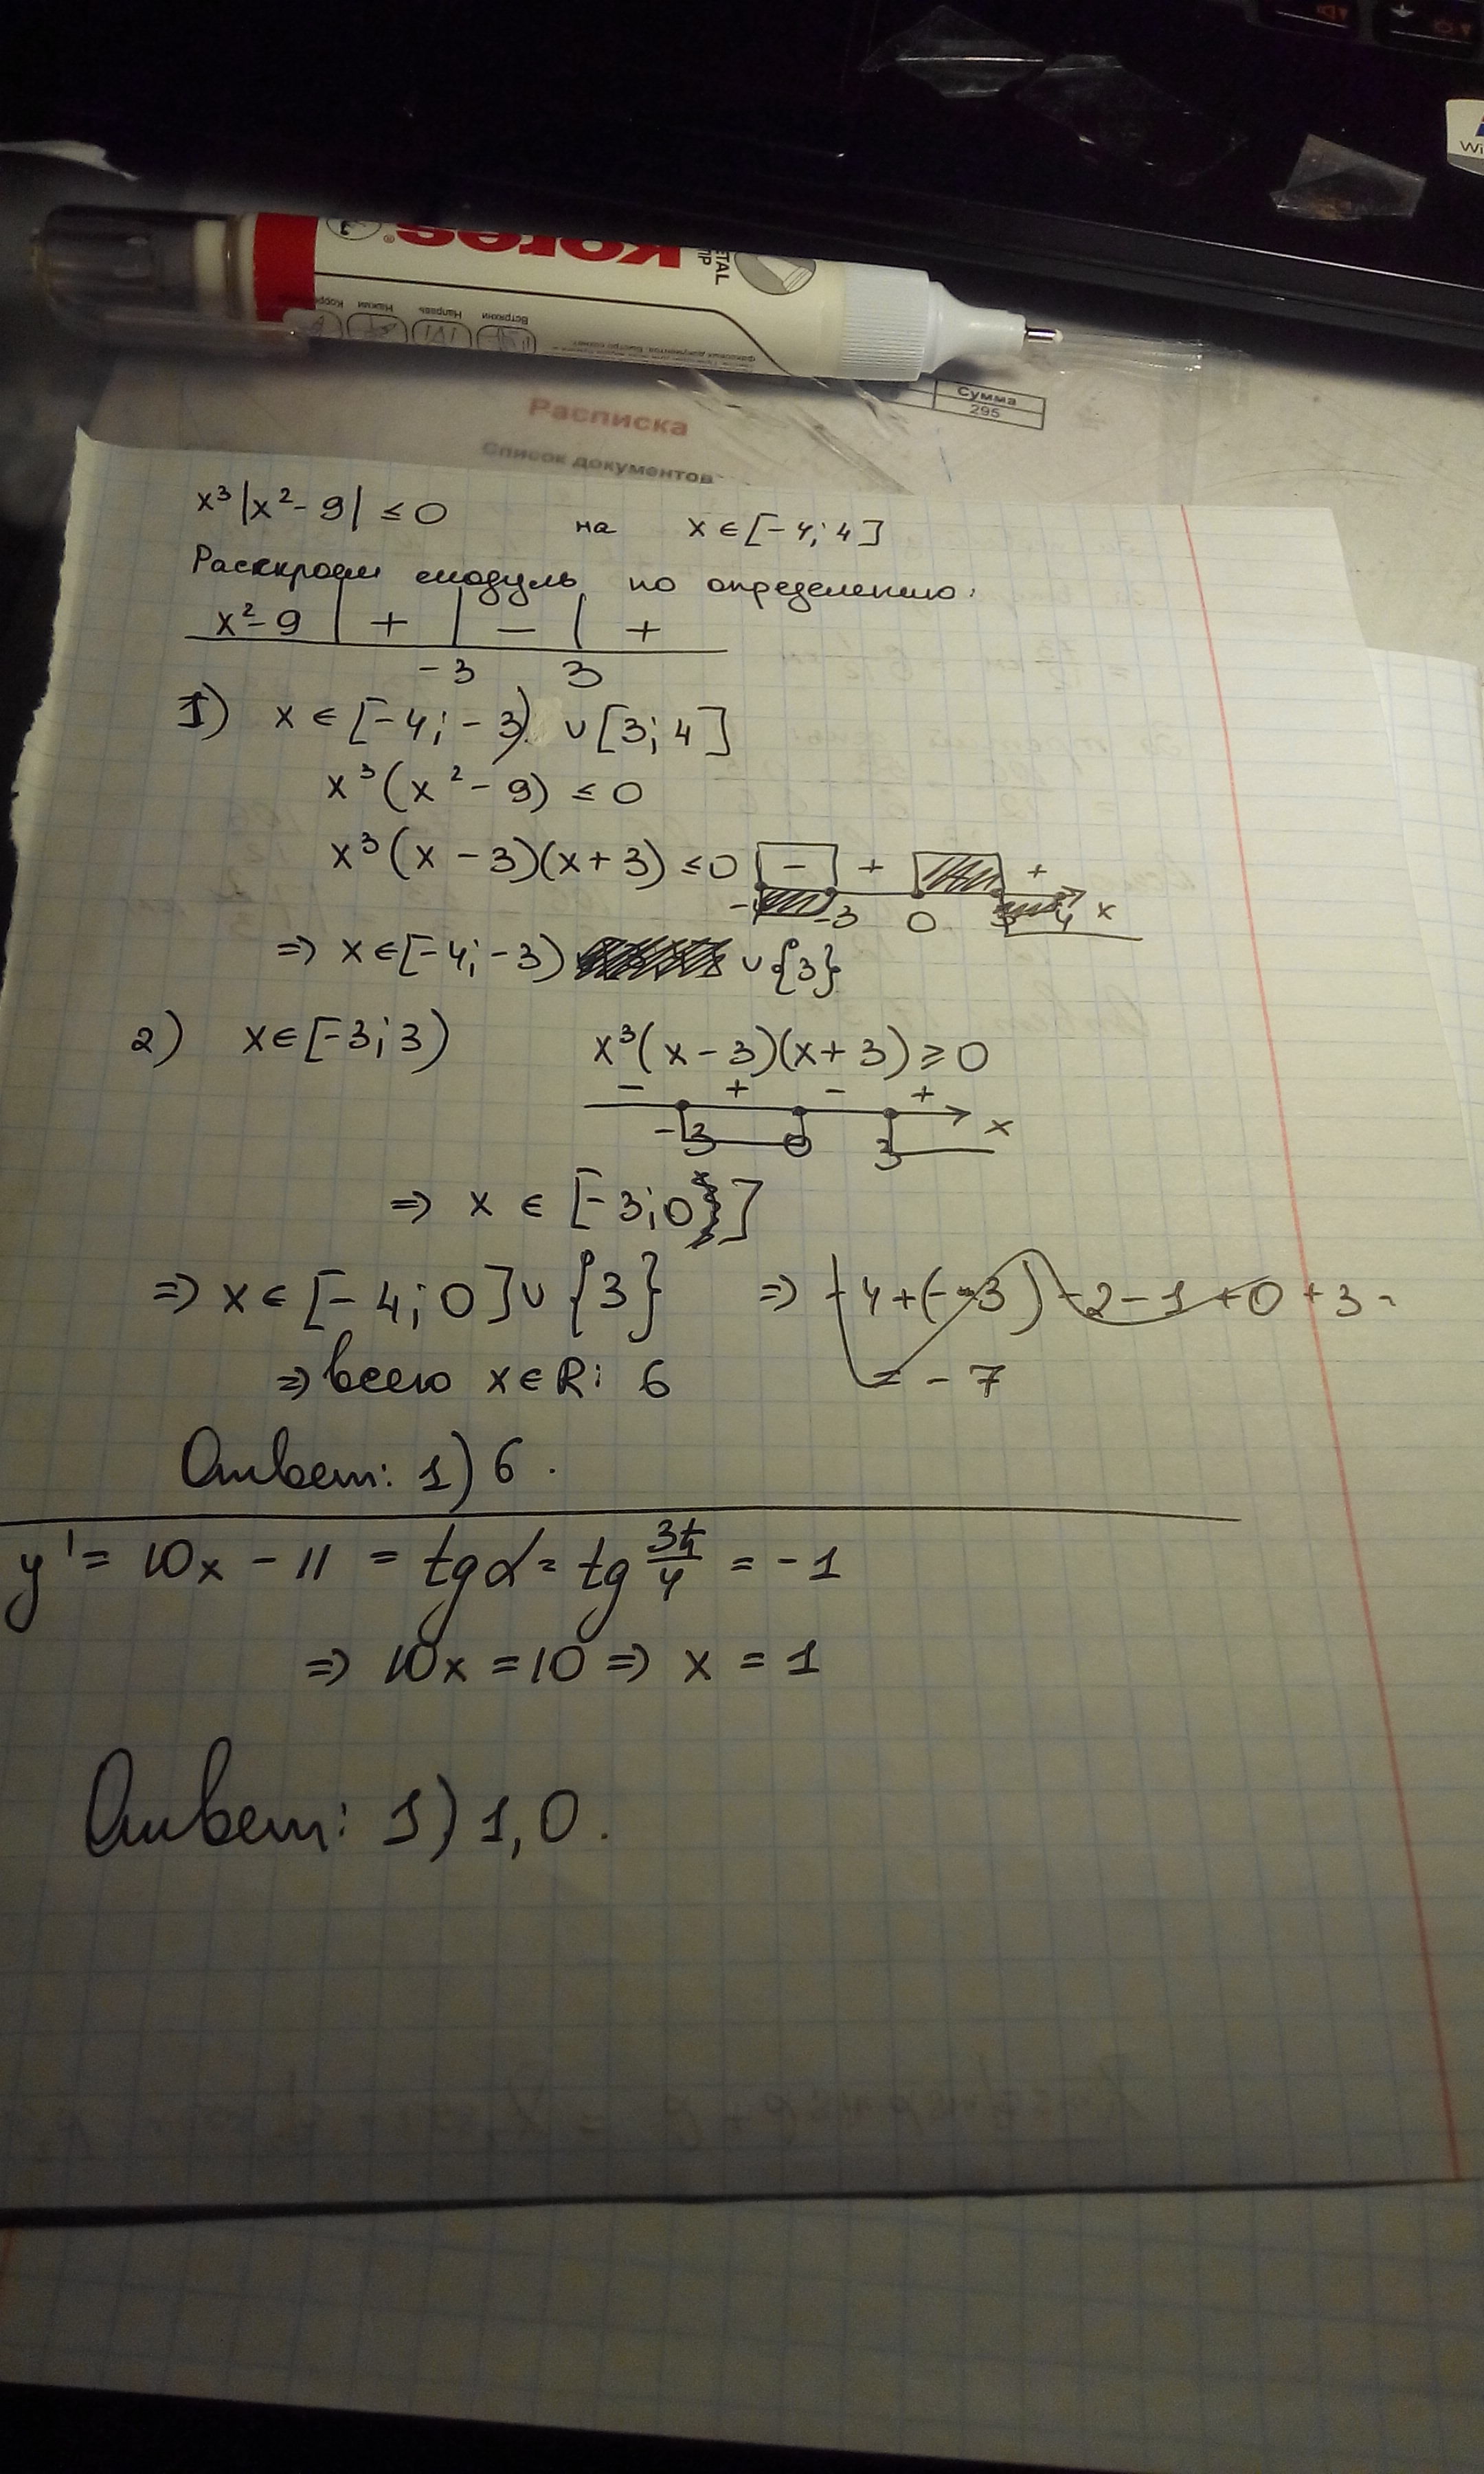 Wi
Kores®
METAL TIP
Встряхни Направь Нажми
Сумма
295
Расписка
Список документов
x³|x² - 9| ≤ 0 на x ∈ [-4; 4]
Раскроем модуль по определению:
x² - 9 | + | - | +
-3 3
1) x ∈ [-4; -3) ∪ [3; 4]
x³(x² - 9) ≤ 0
x³(x - 3)(x + 3) ≤ 0 - + +
-4 -3 0 3 4 x
⇒ x ∈ [-4; -3) ∪ {3}
2) x ∈ [-3; 3) x³(x - 3)(x + 3) ≥ 0
- + - +
-3 0 3 x
⇒ x ∈ [-3; 0]
⇒ x ∈ [-4; 0] ∪ {3} ⇒ -4 + (-3) - 2 - 1 + 0 + 3 =
⇒ всего x ∈ R: 6 = -7
Ответ: 1) 6.
y' = 10x - 11 = tg α = tg 3π/4 = -1
⇒ 10x = 10 ⇒ x = 1
Ответ: 1) 1,0.